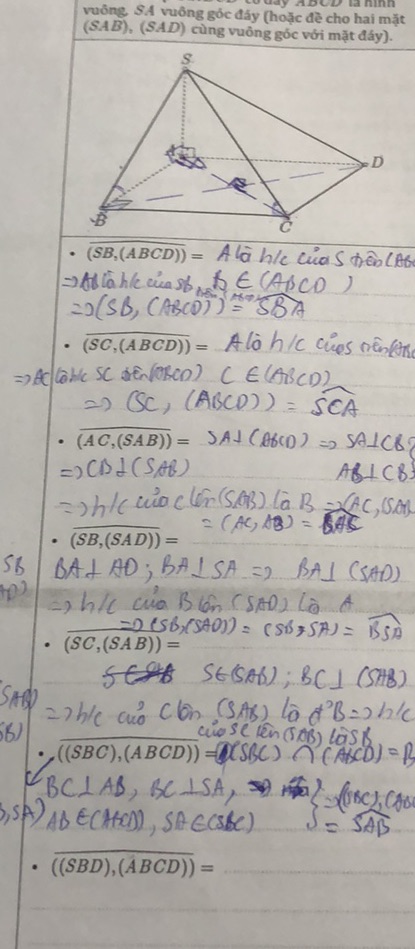 có đáy ABCD là hình
vuông, SA vuông góc đáy (hoặc đề cho hai mặt
(SAB), (SAD) cùng vuông góc với mặt đáy).
S
A
D
B
C
• (SB,(ABCD)) = A là h/c của S trên (ABC
⇒ AB là h/c của SB, B ∈ (ABCD)
⇒ (SB, (ABCD)) = SBA
• (SC,(ABCD)) = A là h/c của S trên (ABC
⇒ AC là h/c SC trên (ABCD) C ∈ (ABCD)
⇒ (SC, (ABCD)) = SCA
• (AC,(SAB)) = SA ⊥ (ABCD) ⇒ SA ⊥ CB
⇒ CB ⊥ (SAB) AB ⊥ CB
⇒ h/c của C lên (SAB) là B ⇒ (AC, (SAB
= (AC, AB) = BAC
• (SB,(SAD)) =
SB BA ⊥ AD ; BA ⊥ SA ⇒ BA ⊥ (SAD)
⇒ h/c của B lên (SAD) là A
⇒ (SB,(SAD)) = (SB, SA) = BSA
• (SC,(SAB)) =
S ∈ (SAB) ; BC ⊥ (SAB)
(SAB) ⇒ h/c của C lên (SAB) là B ⇒ h/c
SB) của SC lên (SAB) là SB
• ((SBC),(ABCD)) = (SBC) ∩ (ABCD) = B
BC ⊥ AB, BC ⊥ SA, ⇒ ((SBC), (ABC
, SA) AB ∈ (ABCD), SA ∈ (SBC) = SAB
• ((SBD),(ABCD)) =